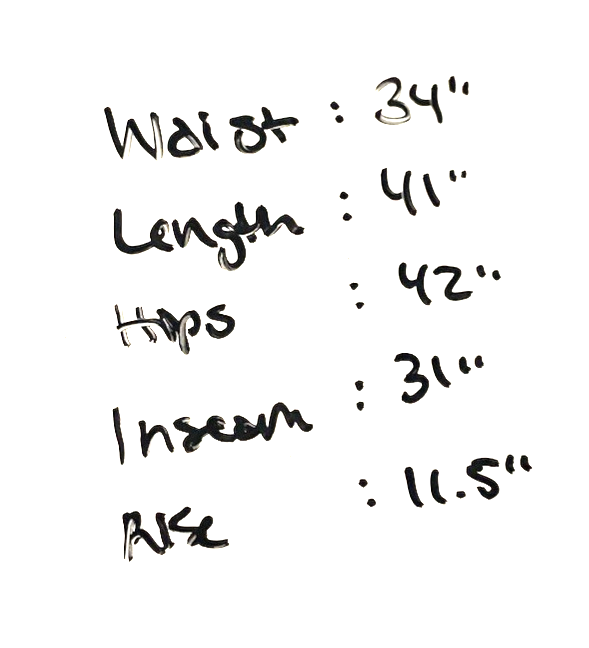 Waist : 34"
Length : 41"
Hips : 42"
Inseam : 31"
Rise : 11.5"